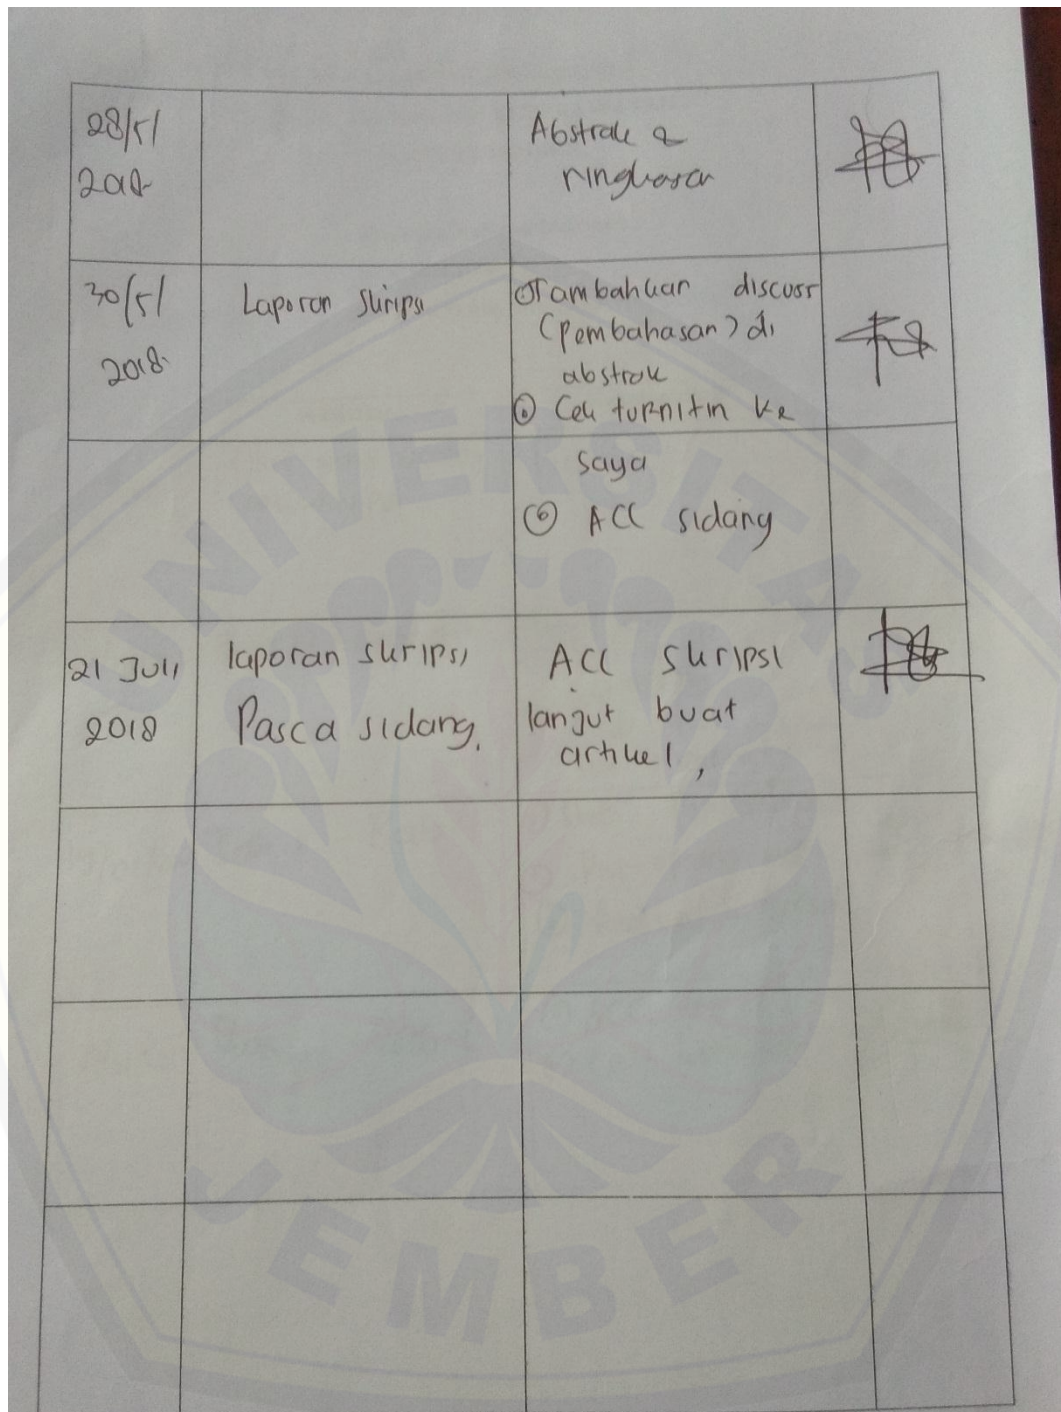 28/5/
2018
Abstrak &
ringkasan
30/5/
2018
Laporan Skripsi
Tambahkan discuss
(Pembahasan) di
abstrak
Cek turnitin ke
saya
ACC sidang
21 Juli
2018
laporan skripsi
Pasca sidang.
ACC skripsi
lanjut buat
artikel,
UNIVERSITAS
JEMBER